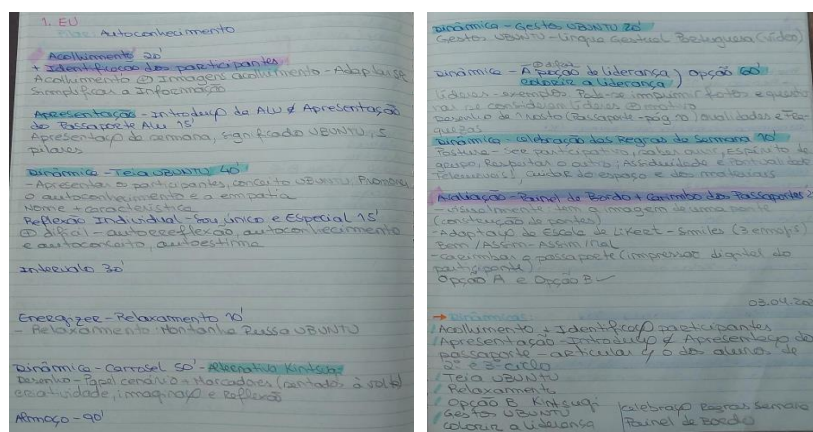 1. EU
Autoconhecimento
Acolhimento 20'
+ Identificação dos participantes
Acolhimento Imagens acolhimento - Adaptar-se
Simplificar a Informação
Apresentação - Introdução de ALU e Apresentação
do Passaporte Alu 15'
Apresentação da semana, significado UBUNTU, 5
pilares
Dinâmica - Teia UBUNTU 40'
- Apresentar o participantes, conceito UBUNTU, Promover
o autoconhecimento e a empatia
Nome + característica
Reflexão Individual - Sou único e Especial 15'
difícil - autorreflexão, autoconhecimento
e autoconceito, autoestima
Intervalo 30'
Energizer - Relaxamento 10'
- Relaxamento Montanha Russa UBUNTU
Dinâmica - Carrosel 50' - Alternativa Kintsugi
Desenho - Papel cenário + Marcadores (sentados à volta)
criatividade, imaginação e Reflexão
Almoço - 90'
Dinâmica - Gestos UBUNTU 20'
Gestos UBUNTU - Língua Gestual Portuguesa (vídeo)
Dinâmica - A de liderança) Opção 60'
colorir a liderança)
líderes - exemplos Pode-se imprimir fotos e
se consideram líderes motivo
Desenho do rosto (Passaporte - pág 10) qualidades e Fra-
quezas
Dinâmica - Celebração das Regras da Semana 10'
Postura - Ser participativo, saber ouvir, espírito de
grupo, Respeitar o outro, Assiduidade e Pontualidade
Telemóveis, cuidar do espaço e dos materiais
Avaliação - Painel de Bordo + Carimbo dos Passaportes
- visualmente tem a imagem de uma
(construção de pontes)
- Adaptação da Escala de Likert - Smiles (3 emojis)
Bom / Assim-Assim / Mal
- carimbar o passaporte (impressão digital do
participante)
Opção A e Opção B
03.04.202
Dinâmicas
Acolhimento + Identificação participantes
Apresentação - Introdução e Apresentação do
passaporte - articular o dos alunos de
2º e 3º ciclo
Teia UBUNTU
Relaxamento
Opção B Kintsugi
Gestos UBUNTU
Colorir a liderança
Celebração Regras Semana
Painel de Bordo